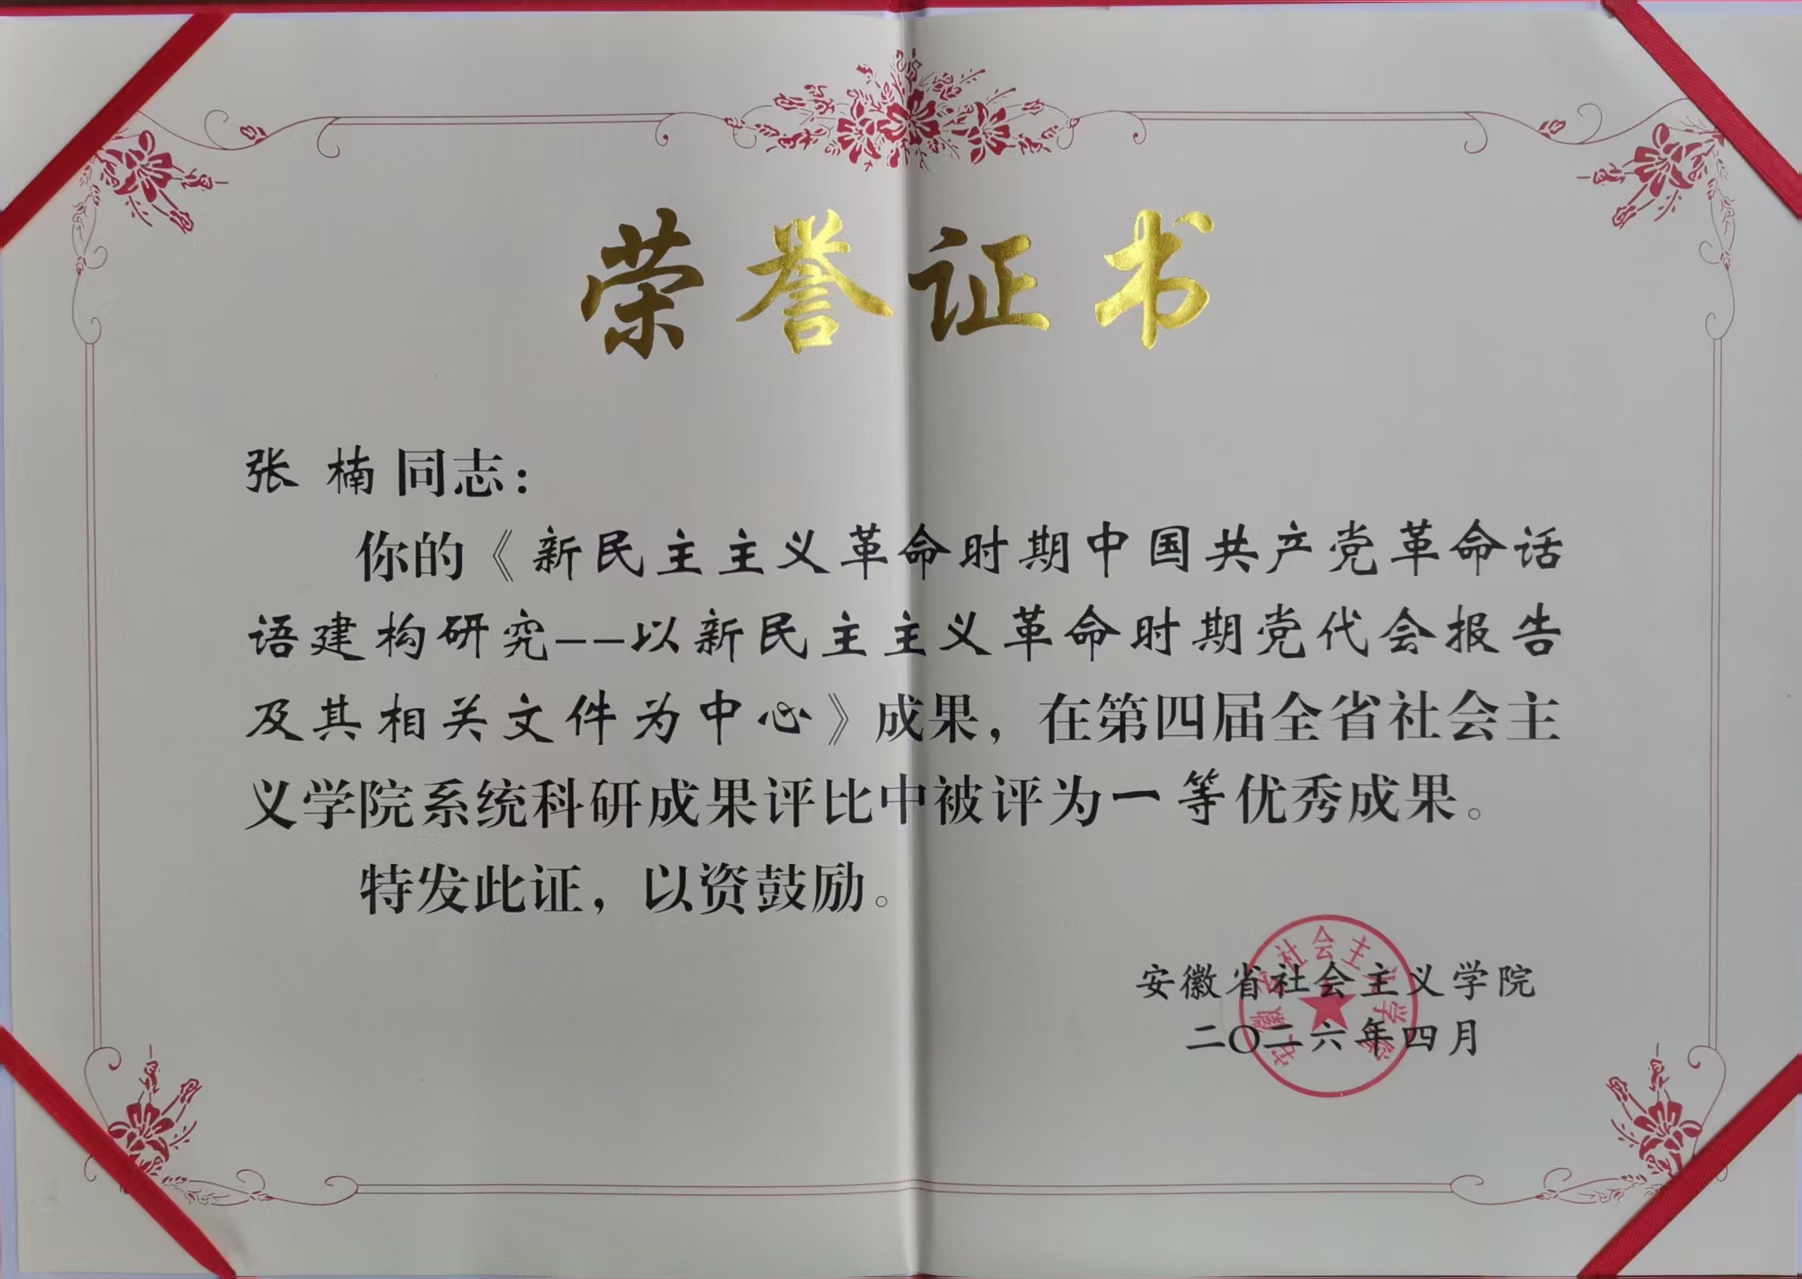 荣誉证书
张 楠 同志：
你的《新民主主义革命时期中国共产党革命话
语建构研究--以新民主主义革命时期党代会报告
及其相关文件为中心》成果，在第四届全省社会主
义学院系统科研成果评比中被评为一等优秀成果。
特发此证，以资鼓励。
安徽省社会主义学院
二〇二六年四月
安徽省社会主义学院